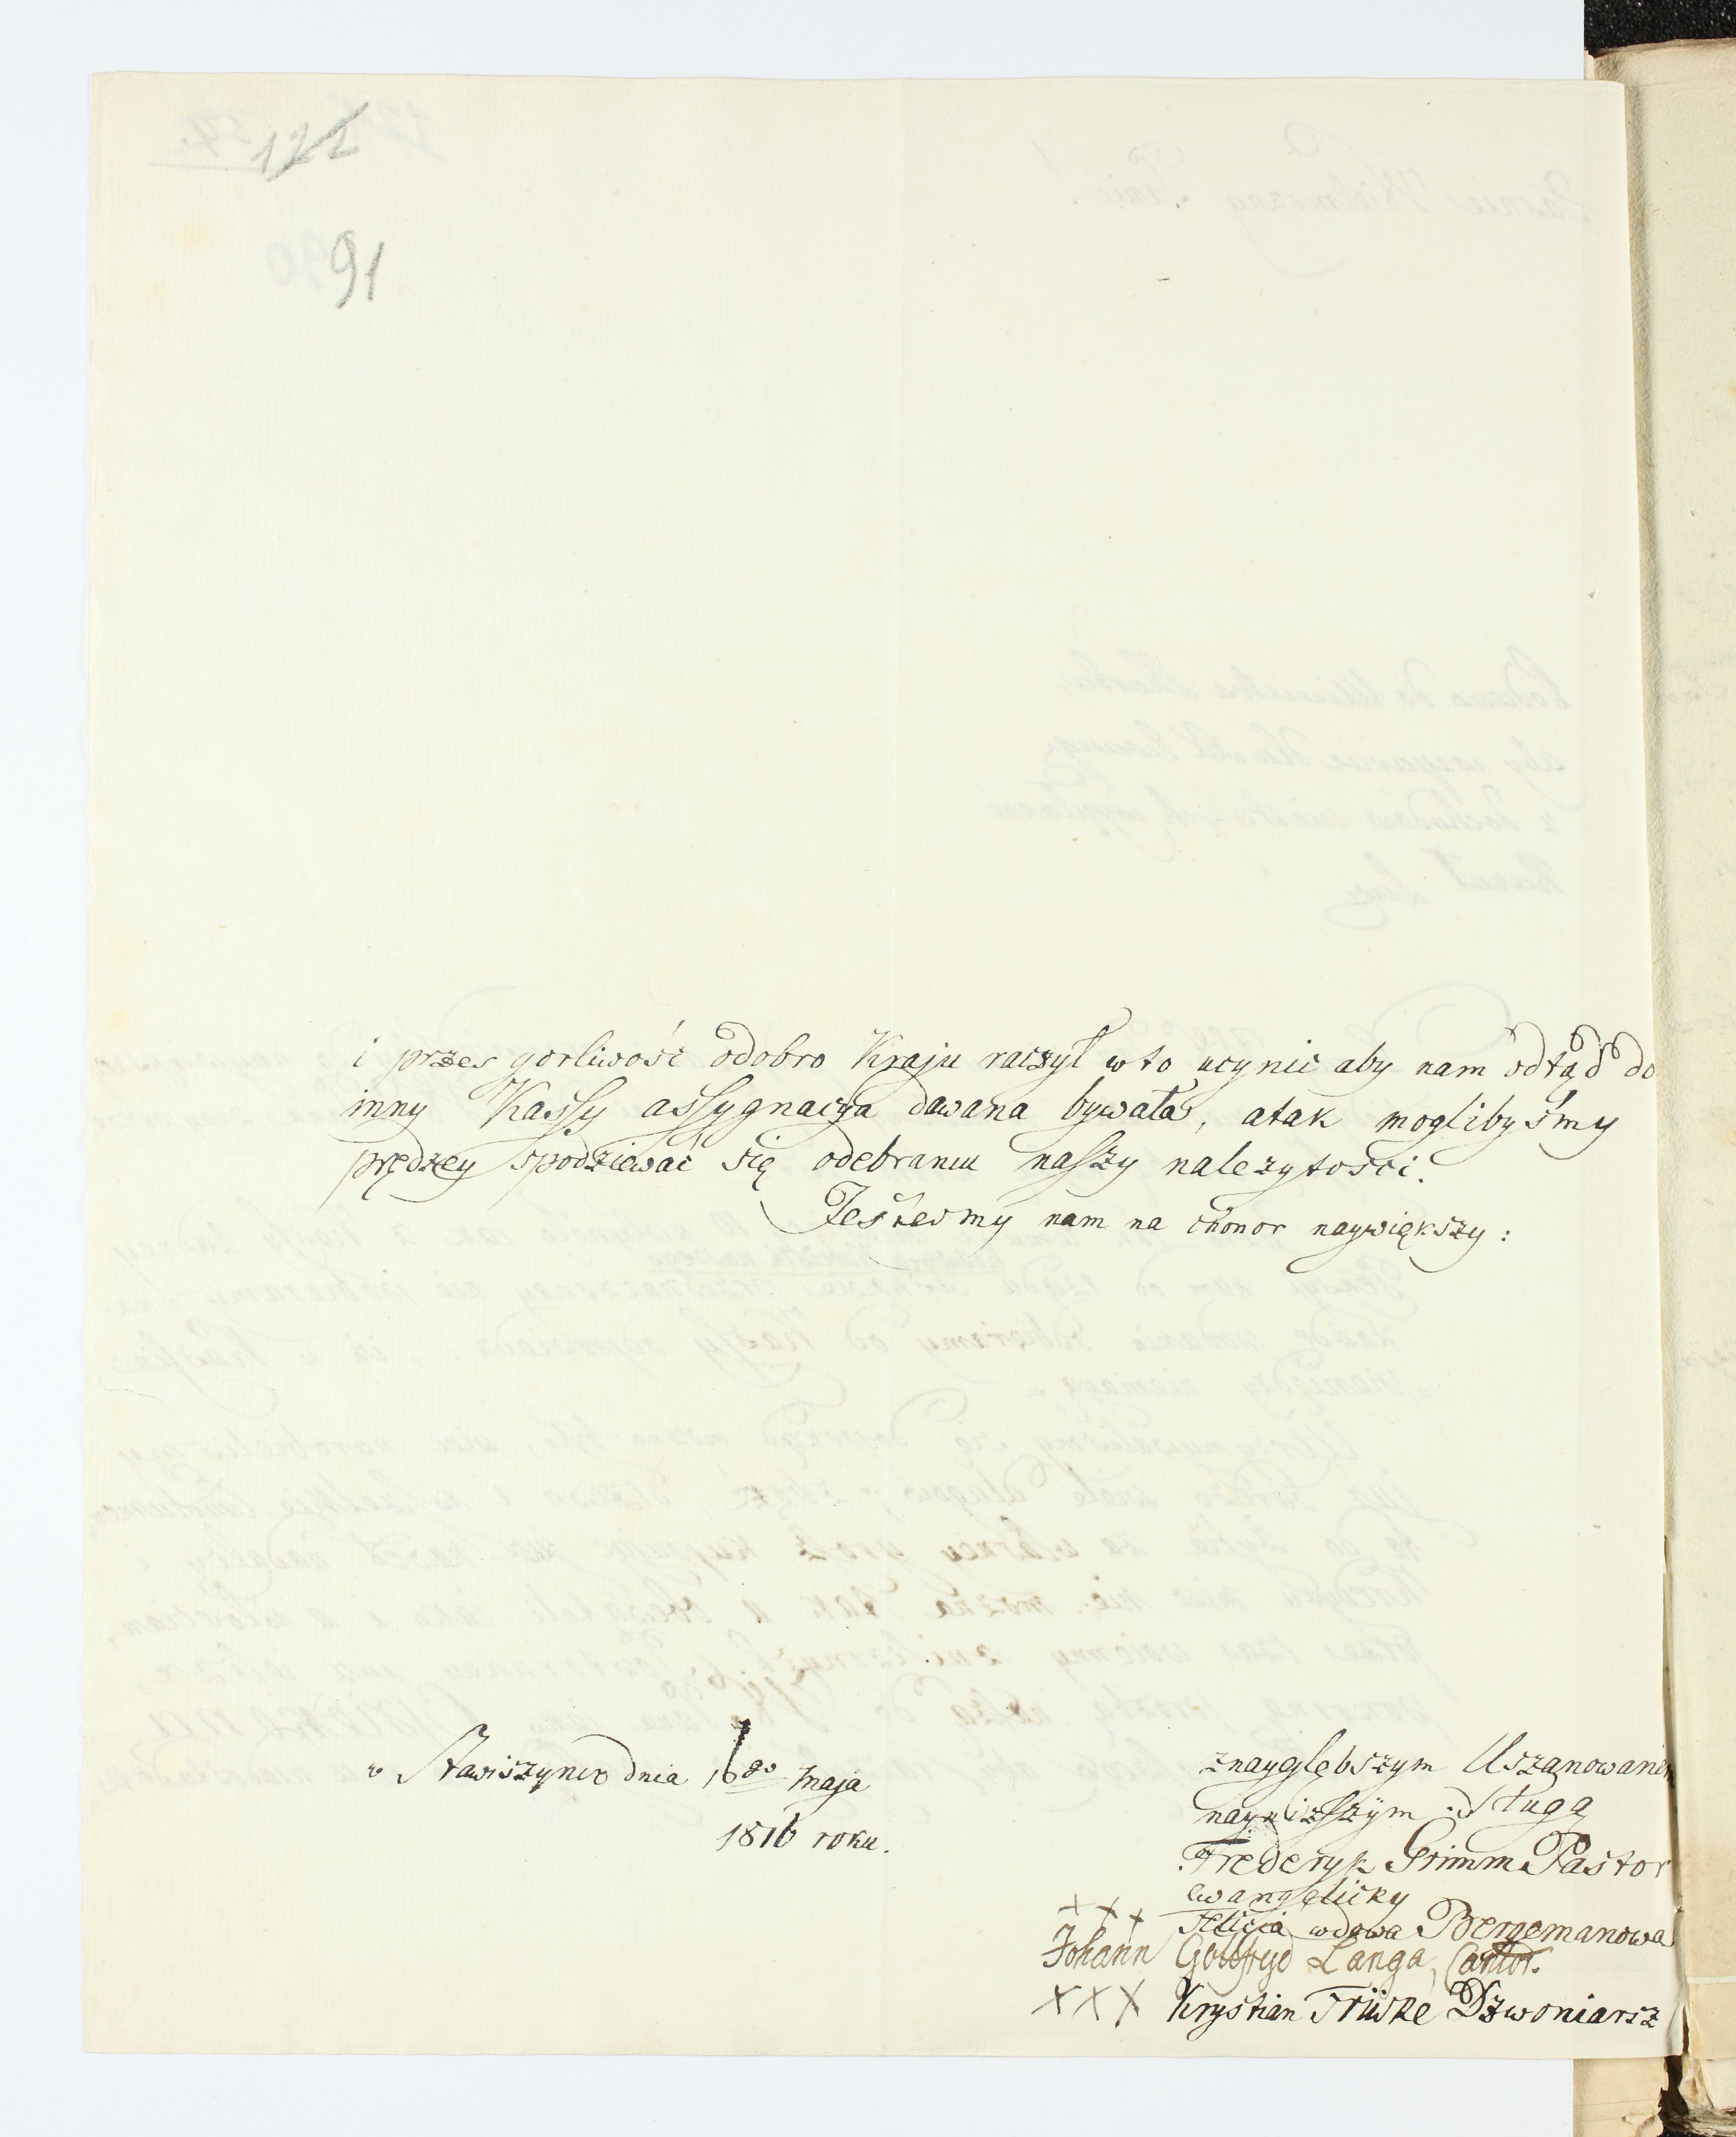 122
91
i przes gorliwość odobro Kraju raczył w to ucynić aby nam odtąd do
inny Kassy assygnacyja dawana bywała, atak moglibyśmy
prędzey spodziewać się odebraniu naszy nalezytości.
Jestesmy nam na chonor naywiększy:
w Stawiszynie dnia 16go maja
1816 roku.
znayglębszym Uszanowanim
nayniższym Sługą
Frederyk Grimm Pastor
ewangelicky
+++ Felicia wdowa Bergemanowa
Johann Gottfryd Langa, Cantor.
XXX Krystian Triske Dzwoniarsz